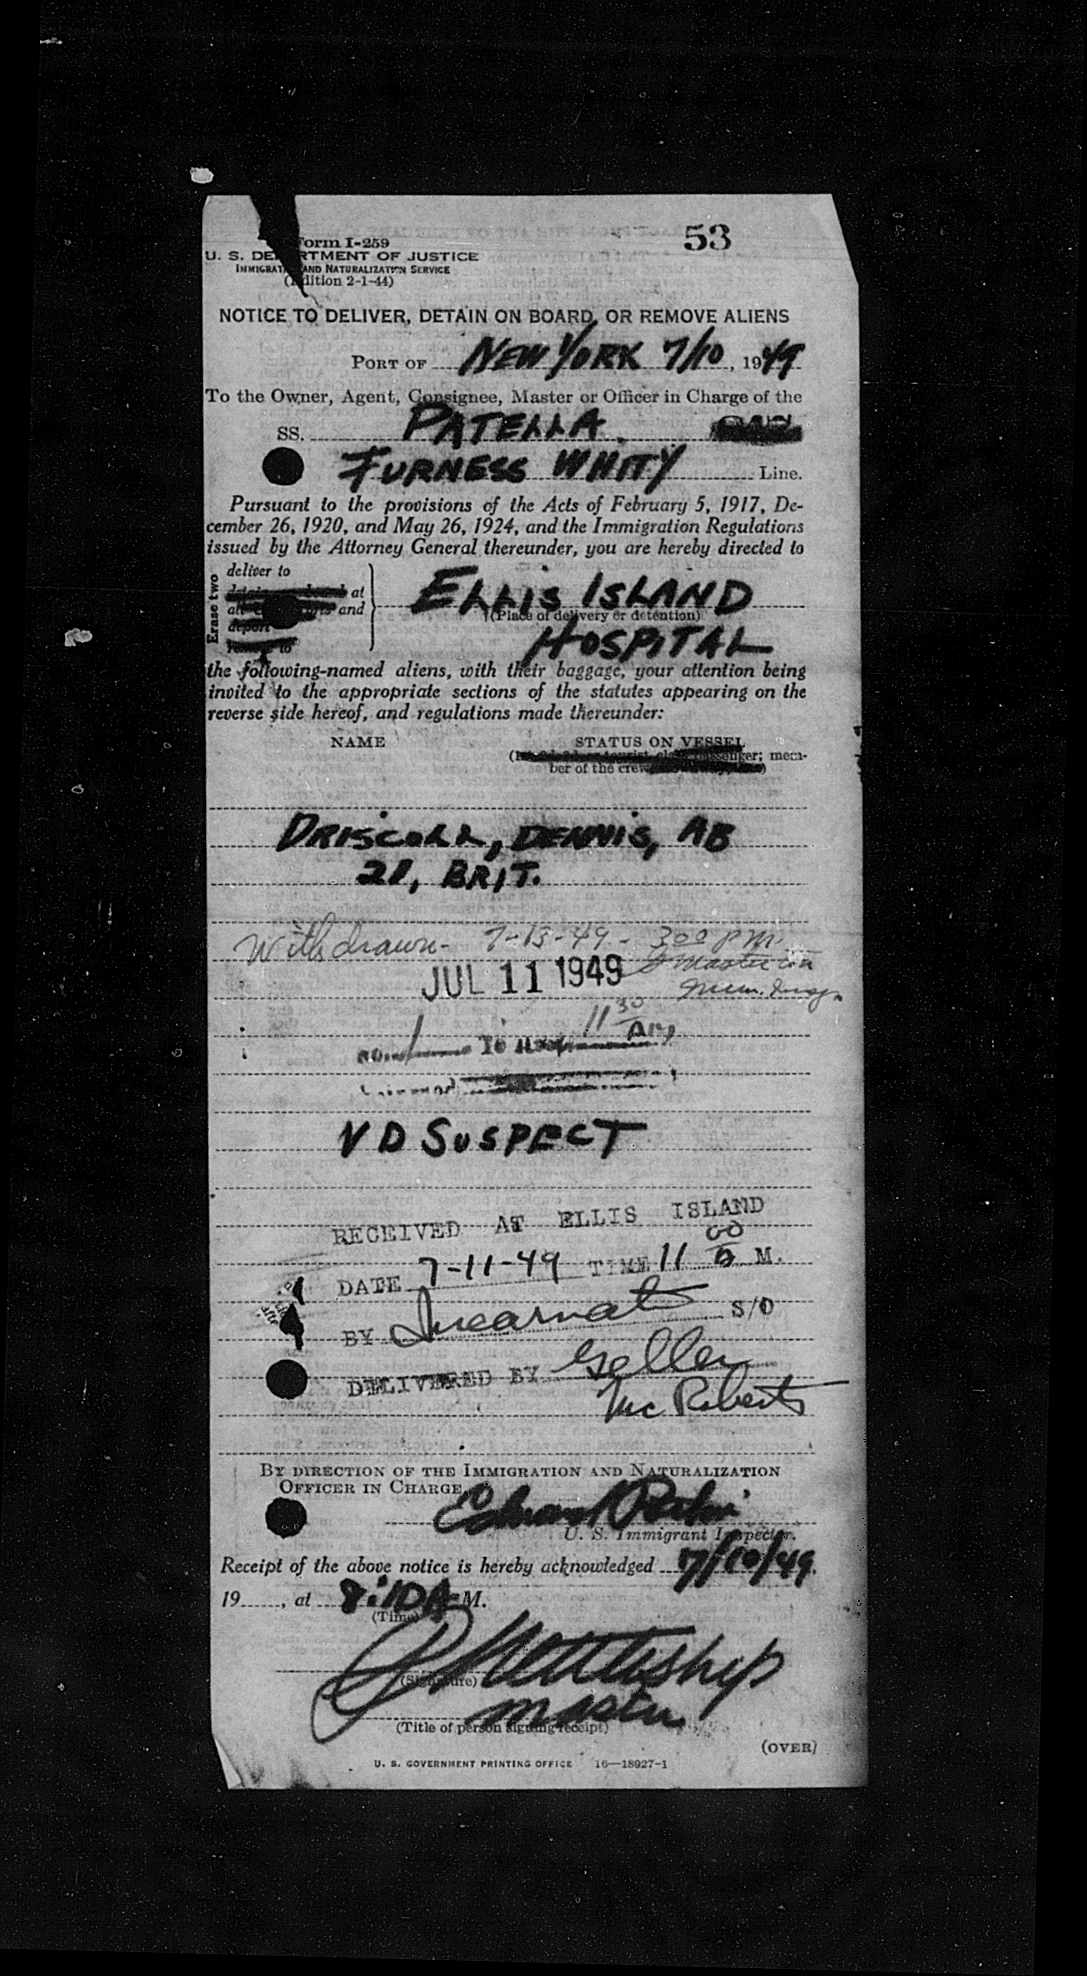 53
Form I-259
U. S. DEPARTMENT OF JUSTICE
IMMIGRATION AND NATURALIZATION SERVICE
(Edition 2-1-44)
NOTICE TO DELIVER, DETAIN ON BOARD, OR REMOVE ALIENS
PORT OF NEW YORK 7/10, 1949
To the Owner, Agent, Consignee, Master or Officer in Charge of the
SS. PATELLA
FURNESS WHITY Line.
Pursuant to the provisions of the Acts of February 5, 1917, De-
cember 26, 1920, and May 26, 1924, and the Immigration Regulations
issued by the Attorney General thereunder, you are hereby directed to
Erase two
deliver to
at
and
deport
ELLIS ISLAND
(Place of delivery or detention)
HOSPITAL
the following-named aliens, with their baggage, your attention being
invited to the appropriate sections of the statutes appearing on the
reverse side hereof, and regulations made thereunder:
NAME STATUS ON VESSEL
passenger; mem-
ber of the crew
DRISCOLL, DENNIS, AB
BRIT.
Withdrawn - 7-13-49 - 3 00 PM.
JUL 11 1949
Master
11 30 AM
V D SUSPECT
RECEIVED AT ELLIS ISLAND
DATE 7-11-49 TIME 11 00 M.
BY S/O
DELIVERED BY Geller
McRoberts
BY DIRECTION OF THE IMMIGRATION AND NATURALIZATION
OFFICER IN CHARGE
U. S. Immigrant Inspector.
Receipt of the above notice is hereby acknowledged 7/10/49
19....., at 8:10 A M.
(Time)
(Signature)
Master
(Title of person signing receipt)
(OVER)
U. S. GOVERNMENT PRINTING OFFICE 16—18927-1